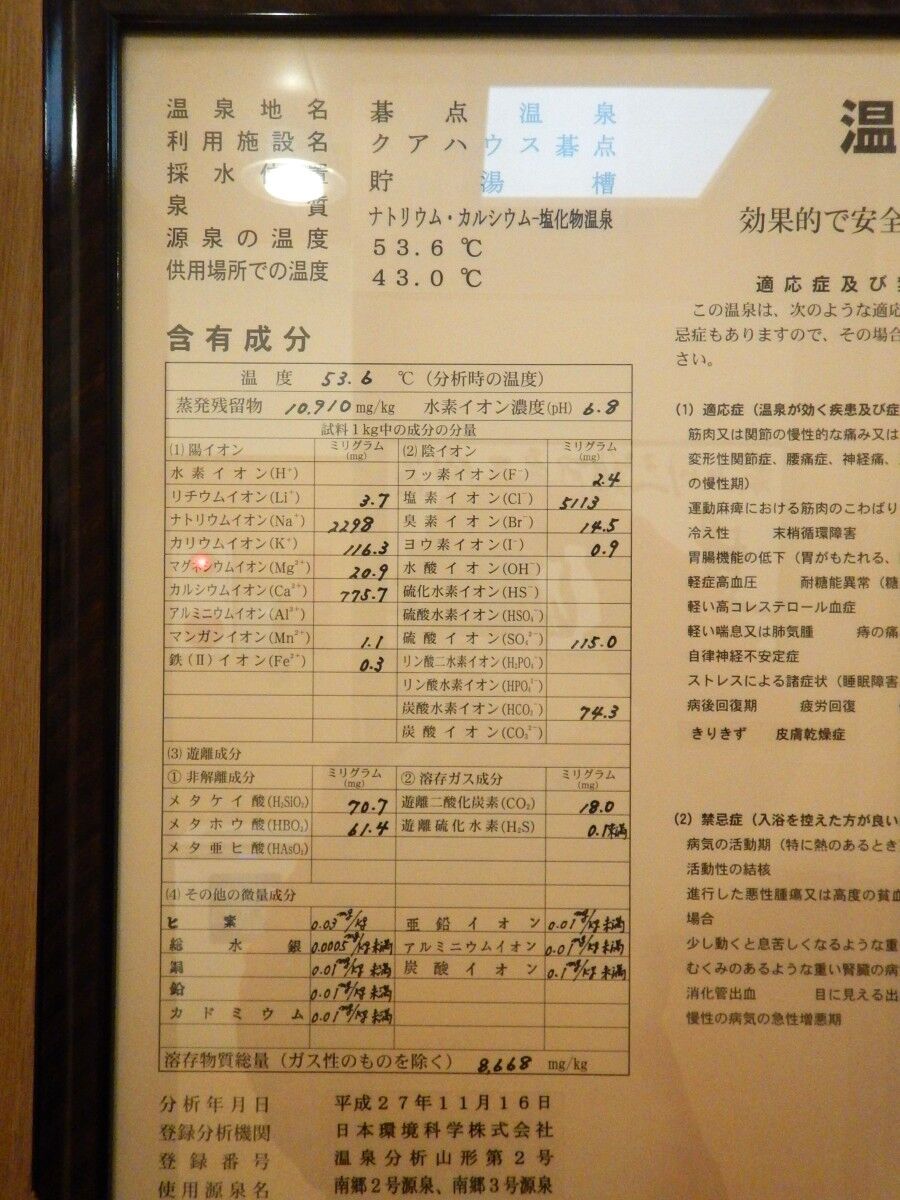 温泉地名 碁点温泉
利用施設名 クアハウス碁点
採水位置 貯湯槽
泉質 ナトリウム・カルシウム-塩化物温泉
源泉の温度 53.6℃
供用場所での温度 43.0℃
含有成分
温度 53.6 ℃(分析時の温度)
蒸発残留物 10,910 mg/kg 水素イオン濃度(pH) 6.8
試料1kg中の成分の分量
(1)陽イオン ミリグラム(mg) (2)陰イオン ミリグラム(mg)
水素イオン(H⁺) フッ素イオン(F⁻) 2.4
リチウムイオン(Li⁺) 3.7 塩素イオン(Cl⁻) 5113
ナトリウムイオン(Na⁺) 2298 臭素イオン(Br⁻) 14.5
カリウムイオン(K⁺) 116.3 ヨウ素イオン(I⁻) 0.9
マグネシウムイオン(Mg²⁺) 20.9 水酸イオン(OH⁻)
カルシウムイオン(Ca²⁺) 775.7 硫化水素イオン(HS⁻)
アルミニウムイオン(Al³⁺) 硫酸水素イオン(HSO₄⁻)
マンガンイオン(Mn²⁺) 1.1 硫酸イオン(SO₄²⁻) 115.0
鉄(II)イオン(Fe²⁺) 0.3 リン酸二水素イオン(H₂PO₄⁻)
リン酸水素イオン(HPO₄²⁻)
炭酸水素イオン(HCO₃⁻) 74.3
炭酸イオン(CO₃²⁻)
(3)遊離成分
①非解離成分 ミリグラム(mg) ②溶存ガス成分 ミリグラム(mg)
メタケイ酸(H₂SiO₃) 70.7 遊離二酸化炭素(CO₂) 18.0
メタホウ酸(HBO₂) 61.4 遊離硫化水素(H₂S) 0.1未満
メタ亜ヒ酸(HAsO₂)
(4)その他の微量成分
ヒ素 0.03mg/kg 亜鉛イオン 0.01mg/kg未満
総水銀 0.0005mg/kg未満 アルミニウムイオン 0.01mg/kg未満
銅 0.01mg/kg未満 炭酸イオン 0.1mg/kg未満
鉛 0.01mg/kg未満
カドミウム 0.01mg/kg未満
溶存物質総量(ガス性のものを除く) 8,668 mg/kg
分析年月日 平成27年11月16日
登録分析機関 日本環境科学株式会社
登録番号 温泉分析山形第2号
使用源泉名 南郷2号源泉、南郷3号源泉
温
効果的で安全
適応症及び
この温泉は、次のような適応
忌症もありますので、その場合
さい。
(1) 適応症(温泉が効く疾患及び症
筋肉又は関節の慢性的な痛み又は
変形性関節症、腰痛症、神経痛、
の慢性期)
運動麻痺における筋肉のこわばり
冷え性 末梢循環障害
胃腸機能の低下(胃がもたれる、
軽症高血圧 耐糖能異常(糖
軽い高コレステロール血症
軽い喘息又は肺気腫 痔の痛
自律神経不安定症
ストレスによる諸症状(睡眠障害
病後回復期 疲労回復
きりきず 皮膚乾燥症
(2) 禁忌症(入浴を控えた方が良い
病気の活動期(特に熱のあるとき
活動性の結核
進行した悪性腫瘍又は高度の貧血
場合
少し動くと息苦しくなるような重
むくみのあるような重い腎臓の病
消化管出血 目に見える出
慢性の病気の急性増悪期